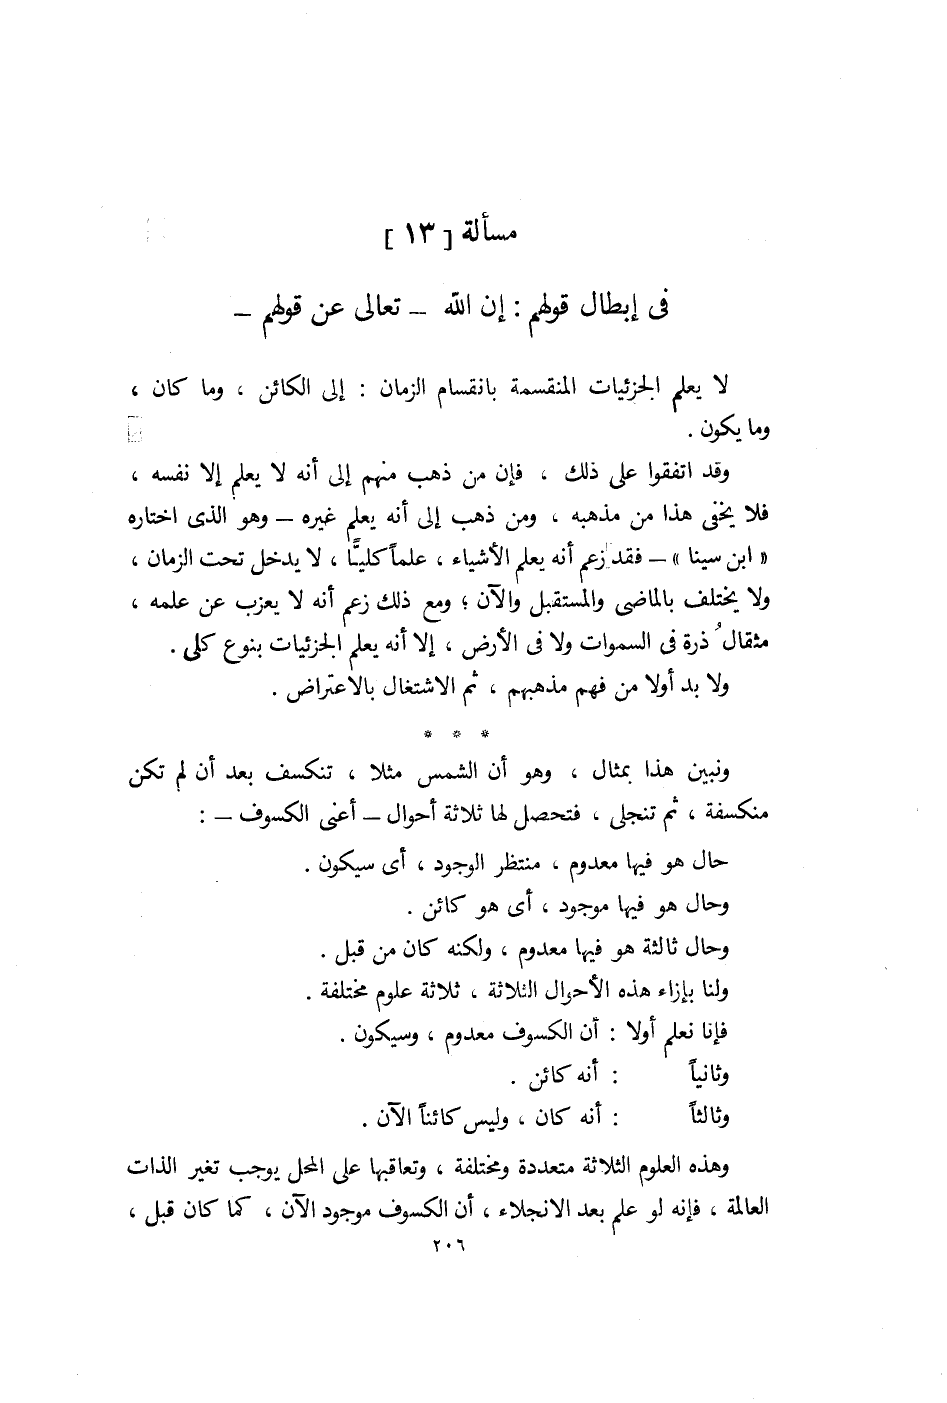 مسألة [ ١٣ ]
فى إبطال قولهم : إن الله – تعالى عن قولهم –
لا يعلم الجزئيات المنقسمة بانقسام الزمان : إلى الكائن ، وما كان ،
وما يكون .
وقد اتفقوا على ذلك ، فإن من ذهب منهم إلى أنه لا يعلم إلا نفسه ،
فلا يخفى هذا من مذهبه ، ومن ذهب إلى أنه يعلم غيره – وهو الذى اختاره
« ابن سينا » – فقد زعم أنه يعلم الأشياء ، علماً كليًّا ، لا يدخل تحت الزمان ،
ولا يختلف بالماضى والمستقبل والآن ؛ ومع ذلك زعم أنه لا يعزب عن علمه ،
مثقالُ ذرة فى السموات ولا فى الأرض ، إلا أنه يعلم الجزئيات بنوع كلى .
ولا بد أولا من فهم مذهبهم ، ثم الاشتغال بالاعتراض .
* * *
ونبين هذا بمثال ، وهو أن الشمس مثلا ، تنكسف بعد أن لم تكن
منكسفة ، ثم تنجلى ، فتحصل لها ثلاثة أحوال – أعنى الكسوف – :
حال هو فيها معدوم ، منتظر الوجود ، أى سيكون .
وحال هو فيها موجود ، أى هو كائن .
وحال ثالثة هو فيها معدوم ، ولكنه كان من قبل .
ولنا بإزاء هذه الأحوال الثلاثة ، ثلاثة علوم مختلفة .
فإنا نعلم أولا : أن الكسوف معدوم ، وسيكون .
وثانياً : أنه كائن .
وثالثاً : أنه كان ، وليس كائناً الآن .
وهذه العلوم الثلاثة متعددة ومختلفة ، وتعاقبها على المحل يوجب تغير الذات
العالمة ، فإنه لو علم بعد الانجلاء ، أن الكسوف موجود الآن ، كما كان قبل ،
٢٠٦